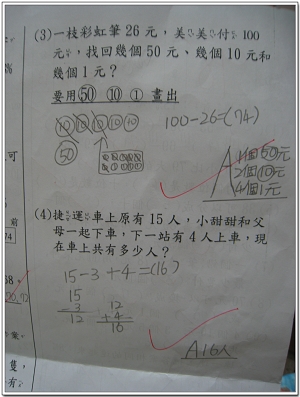 (3)一枝彩虹筆 26 元,美美付 100
元,找回幾個 50 元、幾個 10 元和
幾個 1 元?
要用㊿ ⑩ ① 畫出
⑩⑩⑩⑩⑩
㊿
100-26=(74)
A 1個50元
2個⑩元
4個1元
(4)捷運車上原有 15 人,小甜甜和父
母一起下車,下一站有 4 人上車,現
在車上共有多少人?
15-3+4=(16)
15
-3
12
12
+4
16
A16人
可
前
74
隻,
有